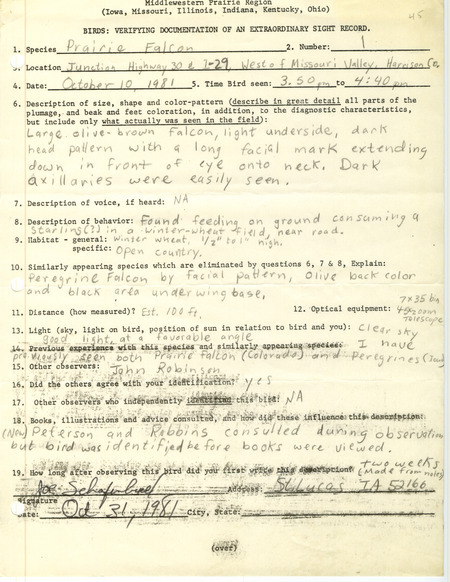 Middlewestern Prairie Region
(Iowa, Missouri, Illinois, Indiana, Kentucky, Ohio)
45
BIRDS: VERIFYING DOCUMENTATION OF AN EXTRAORDINARY SIGHT RECORD.
1. Species Prairie Falcon 2. Number: 1
3. Location Junction Highway 30 & I-29, West of Missouri Valley, Harrison Co.
4. Date: October 10, 1981 5. Time Bird seen: 3:50 pm to 4:40 pm
6. Description of size, shape and color-pattern (describe in great detail all parts of the
plumage, and beak and feet coloration, in addition, to the diagnostic characteristics,
but include only what actually was seen in the field):
Large olive-brown falcon, light underside, dark
head pattern with a long facial mark extending
down in front of eye onto neck. Dark
axillaries were easily seen.
7. Description of voice, if heard: NA
8. Description of behavior: Found feeding on ground consuming a
Starling(?) in a winter-wheat field, near road.
9. Habitat - general: Winter wheat, 1/2" to 1" high.
specific: Open country.
10. Similarly appearing species which are eliminated by questions 6, 7 & 8, Explain:
Peregrine Falcon by facial pattern, olive back color
and black area underwing base.
11. Distance (how measured)? Est. 100 ft. 12. Optical equipment: 7x35 bin
zoom
Telescope
13. Light (sky, light on bird, position of sun in relation to bird and you): Clear sky
good light, at a favorable angle
14. Previous experience with this species and similarly appearing species: I have
previously seen both Prairie Falcon (Colorado) and Peregrines (Iowa)
15. Other observers: John Robinson
16. Did the others agree with your identification? yes
17. Other observers who independently identified this bird: NA
18. Books, illustrations and advice consulted, and how did these influence this description:
(New) Peterson and Robbins consulted during observation
but bird was identified before books were viewed.
19. How long after observing this bird did you first write this description? two weeks
(Made from notes)
Joe Schaufenbuel Address: St. Lucas, IA 52166
Signature
Date: Oct 31, 1981 City, State:
(over)